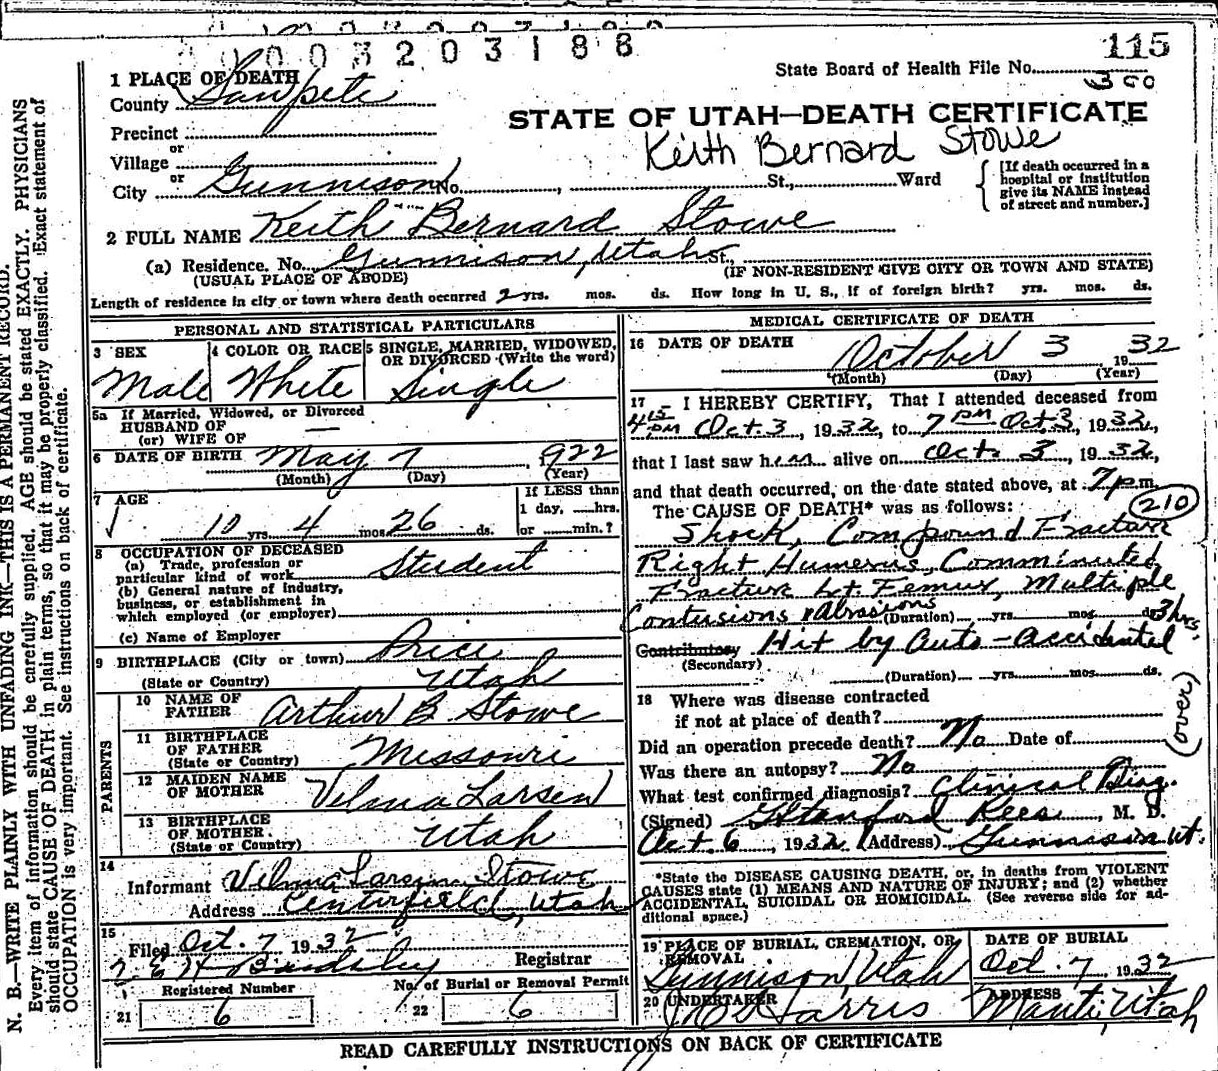 0 0 3 2 0 3 1 8 8
115
State Board of Health File No.
300
1 PLACE OF DEATH
County Sanpete
STATE OF UTAH—DEATH CERTIFICATE
Precinct
or
Keith Bernard Stowe
Village
or
City Gunnison No. , St., Ward
[If death occurred in a hospital or institution give its NAME instead of street and number.]
2 FULL NAME Keith Bernard Stowe
(a) Residence. No. Gunnison, Utah St.,
(USUAL PLACE OF ABODE) (IF NON-RESIDENT GIVE CITY OR TOWN AND STATE)
Length of residence in city or town where death occurred 2 yrs. mos. ds. How long in U. S., if of foreign birth? yrs. mos. ds.
PERSONAL AND STATISTICAL PARTICULARS
3 SEX 4 COLOR OR RACE 5 SINGLE, MARRIED, WIDOWED,
OR DIVORCED (Write the word)
Male White Single
5a If Married, Widowed, or Divorced
HUSBAND OF —
(or) WIFE OF
6 DATE OF BIRTH May 7, 1922
(Month) (Day) (Year)
7 AGE If LESS than
1 day, hrs.
10 yrs. 4 mos. 26 ds. or min.?
8 OCCUPATION OF DECEASED
(a) Trade, profession or
particular kind of work Student
(b) General nature of industry,
business, or establishment in
which employed (or employer)
(c) Name of Employer
9 BIRTHPLACE (City or town) Price
(State or Country) Utah
PARENTS
10 NAME OF
FATHER Arthur B. Stowe
11 BIRTHPLACE
OF FATHER Missouri
(State or Country)
12 MAIDEN NAME
OF MOTHER Velma Larsen
13 BIRTHPLACE
OF MOTHER Utah
(State or Country)
14
Informant Velma Larsen Stowe
Address Centerfield, Utah
15
Filed Oct. 7 1932
Registrar
Registered Number No. of Burial or Removal Permit
21 6 22 6
MEDICAL CERTIFICATE OF DEATH
16 DATE OF DEATH October 3 1932
(Month) (Day) (Year)
17 I HEREBY CERTIFY, That I attended deceased from
4 15 pm Oct. 3, 1932, to 7 pm Oct 3, 1932,
that I last saw him alive on Oct. 3, 1932,
and that death occurred, on the date stated above, at 7 p.m.
The CAUSE OF DEATH* was as follows: 210
Shock, Compound Fracture
Right Humerus, Comminuted
Fracture Lt. Femur, Multiple
Contusions & Abrasions
(Duration) yrs. mos. ds. 3 hrs.
Contributory Hit by Auto - accidental
(Secondary)
(Duration) yrs. mos. ds.
(over)
18 Where was disease contracted
if not at place of death?
Did an operation precede death? No Date of
Was there an autopsy? No
What test confirmed diagnosis? Clinical Diag.
(Signed) G Stanford Rees, M. D.
Oct. 6, 1932 (Address) Gunnison Ut.
*State the DISEASE CAUSING DEATH, or, in deaths from VIOLENT
CAUSES state (1) MEANS AND NATURE OF INJURY; and (2) whether
ACCIDENTAL, SUICIDAL OR HOMICIDAL. (See reverse side for ad-
ditional space.)
19 PLACE OF BURIAL, CREMATION, OR REMOVAL DATE OF BURIAL
Gunnison, Utah Oct. 7, 1932
20 UNDERTAKER ADDRESS
Harris Manti, Utah
READ CAREFULLY INSTRUCTIONS ON BACK OF CERTIFICATE
N. B.—WRITE PLAINLY WITH UNFADING INK—THIS IS A PERMANENT RECORD.
Every item of information should be carefully supplied. AGE should be stated EXACTLY. PHYSICIANS
should state CAUSE OF DEATH in plain terms, so that it may be properly classified. Exact statement of
OCCUPATION is very important. See instructions on back of certificate.